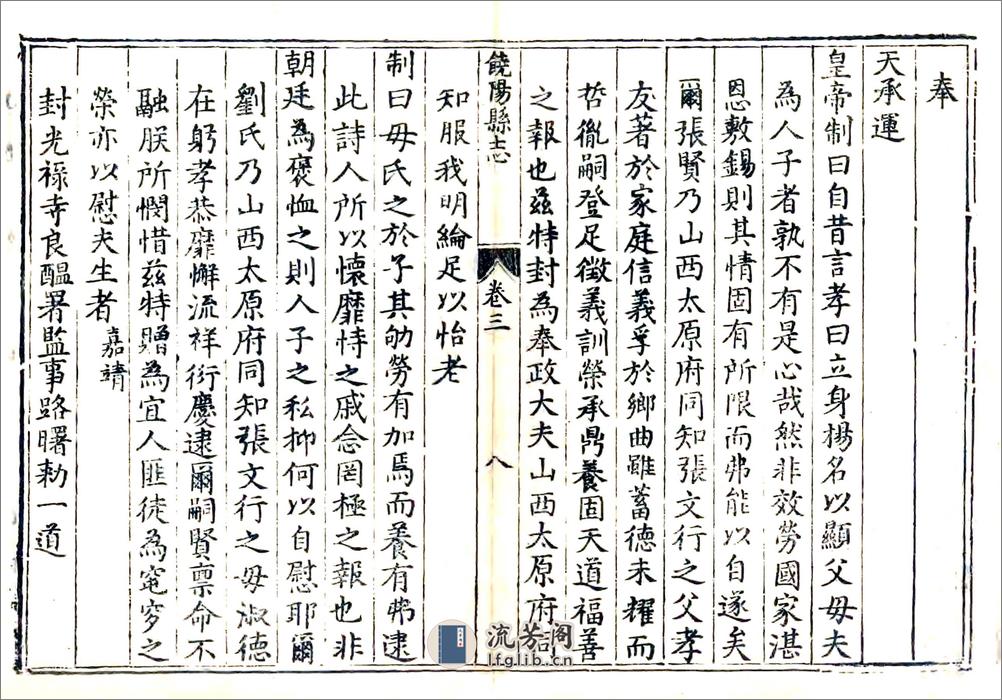 奉
天承運
皇帝制曰自昔言孝曰立身揚名以顯父母夫
為人子者孰不有是心哉然非效勞國家湛
恩敷錫則其情固有所限而弗能以自遂矣
爾張賢乃山西太原府同知張文行之父孝
友著於家庭信義孚於鄉曲雖蓄德未耀而
哲胤嗣登足徵義訓榮承鼎養固天道福善
之報也茲特封為奉政大夫山西太原府
饒陽縣志 卷三 八
知服我明綸足以怡老
制曰母氏之於子其劬勞有加焉而養有弗逮
此詩人所以懷靡恃之戚念罔極之報也非
朝廷為褒恤之則人子之私抑何以自慰耶爾
劉氏乃山西太原府同知張文行之母淑德
在躬孝恭靡懈流祥衍慶逮爾嗣賢禀命不
融朕所憫惜茲特贈為宜人匪徒為窀穸之
榮亦以慰夫生者 嘉靖
封光禄寺良醖署監事路曙勅一道
流芳阁
lfglib.cn